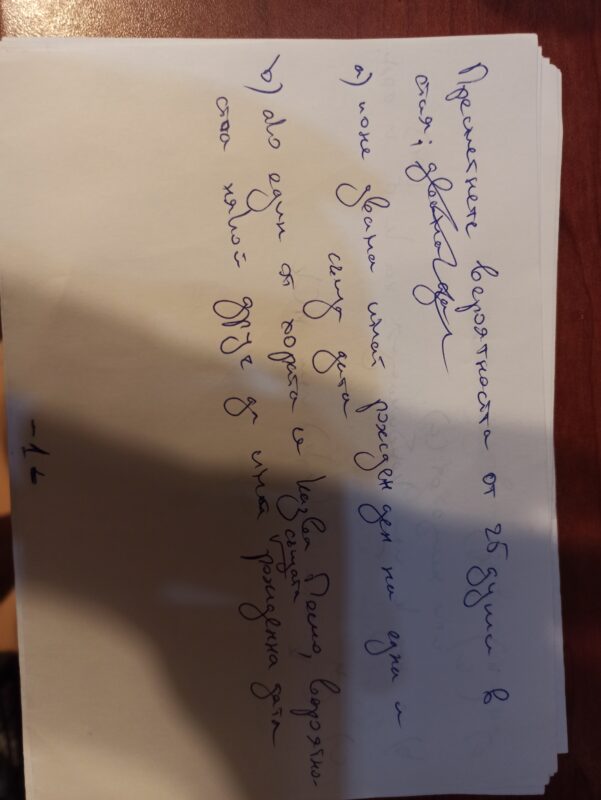 Пресметнете вероятността от 25 души в
стая:
а) поне двама имат рожден ден на една и
съща дата
b) ако един от хората се казва Пешо, вероятно-
ста някой друг да има същата рождена дата
- 1 -